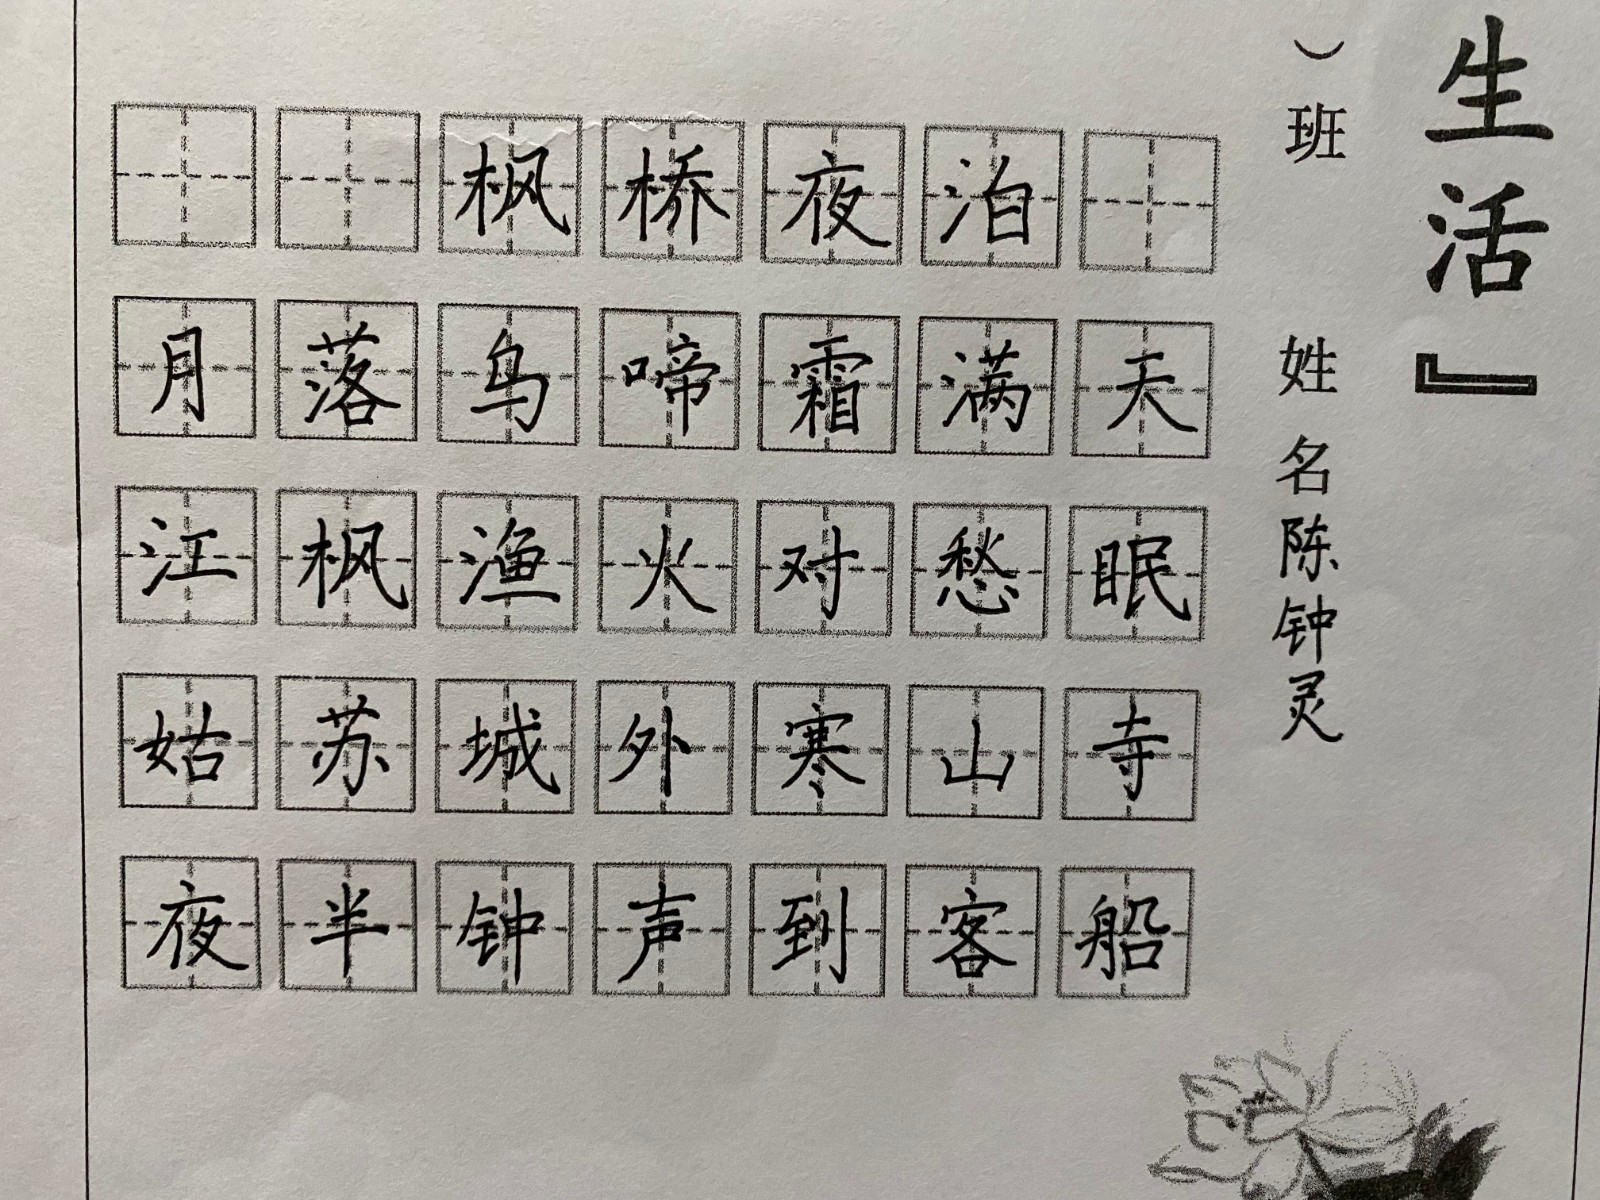 枫桥夜泊
月落鸟啼霜满天
江枫渔火对愁眠
姑苏城外寒山寺
夜半钟声到客船
）班 姓名陈钟灵
生活』